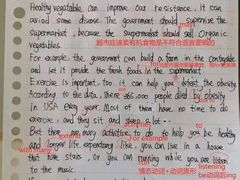 Healthy vegetable can improve our resistance. It can
avoid some disease. The government should supervise the
may
supermarket, because the supermarket should sell Organic
vegetables.
超市应该卖有机食物是不符合语言逻辑的
For example. the government can build a farm in the
and let it provide the fresh foods in the supermarket.
Exercise is important, too. it can help you the obesity.
According to the data. there are 365,000 people died by obesity
In USA every year. Most of them have no time to do
exercise. and they sit and sleep a lot.
But there are many activities to do to help you be healthy
extend
for example
and longer life expectancy like. you can live in a house
with many
that have stairs, or you can running while you are listen
listening
to the music.
情态动词+动词原形
be动词后ing